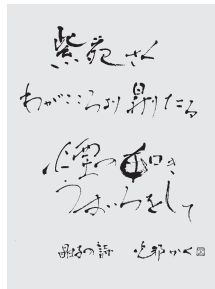 紫苑さく
わがこころより昇りたる
煙の如き
うすいろをして
晶子の詩 かく